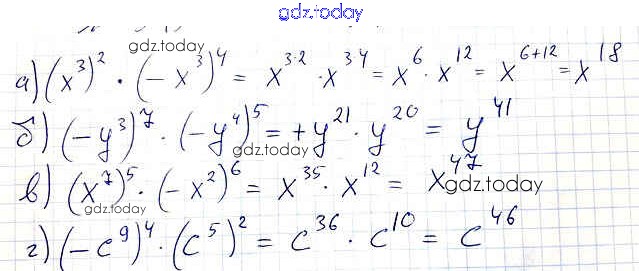 gdz.today
gdz.today
а) (x³)² · (-x³)⁴ = x³·² · x³·⁴ = x⁶ · x¹² = x⁶⁺¹² = x¹⁸
б) (-y³)⁷ · (-y⁴)⁵ = +y²¹ · y²⁰ = y⁴¹
gdz.today
в) (x⁷)⁵ · (-x²)⁶ = x³⁵ · x¹² = x⁴⁷
gdz.today
gdz.today
г) (-c⁹)⁴ · (c⁵)² = c³⁶ · c¹⁰ = c⁴⁶